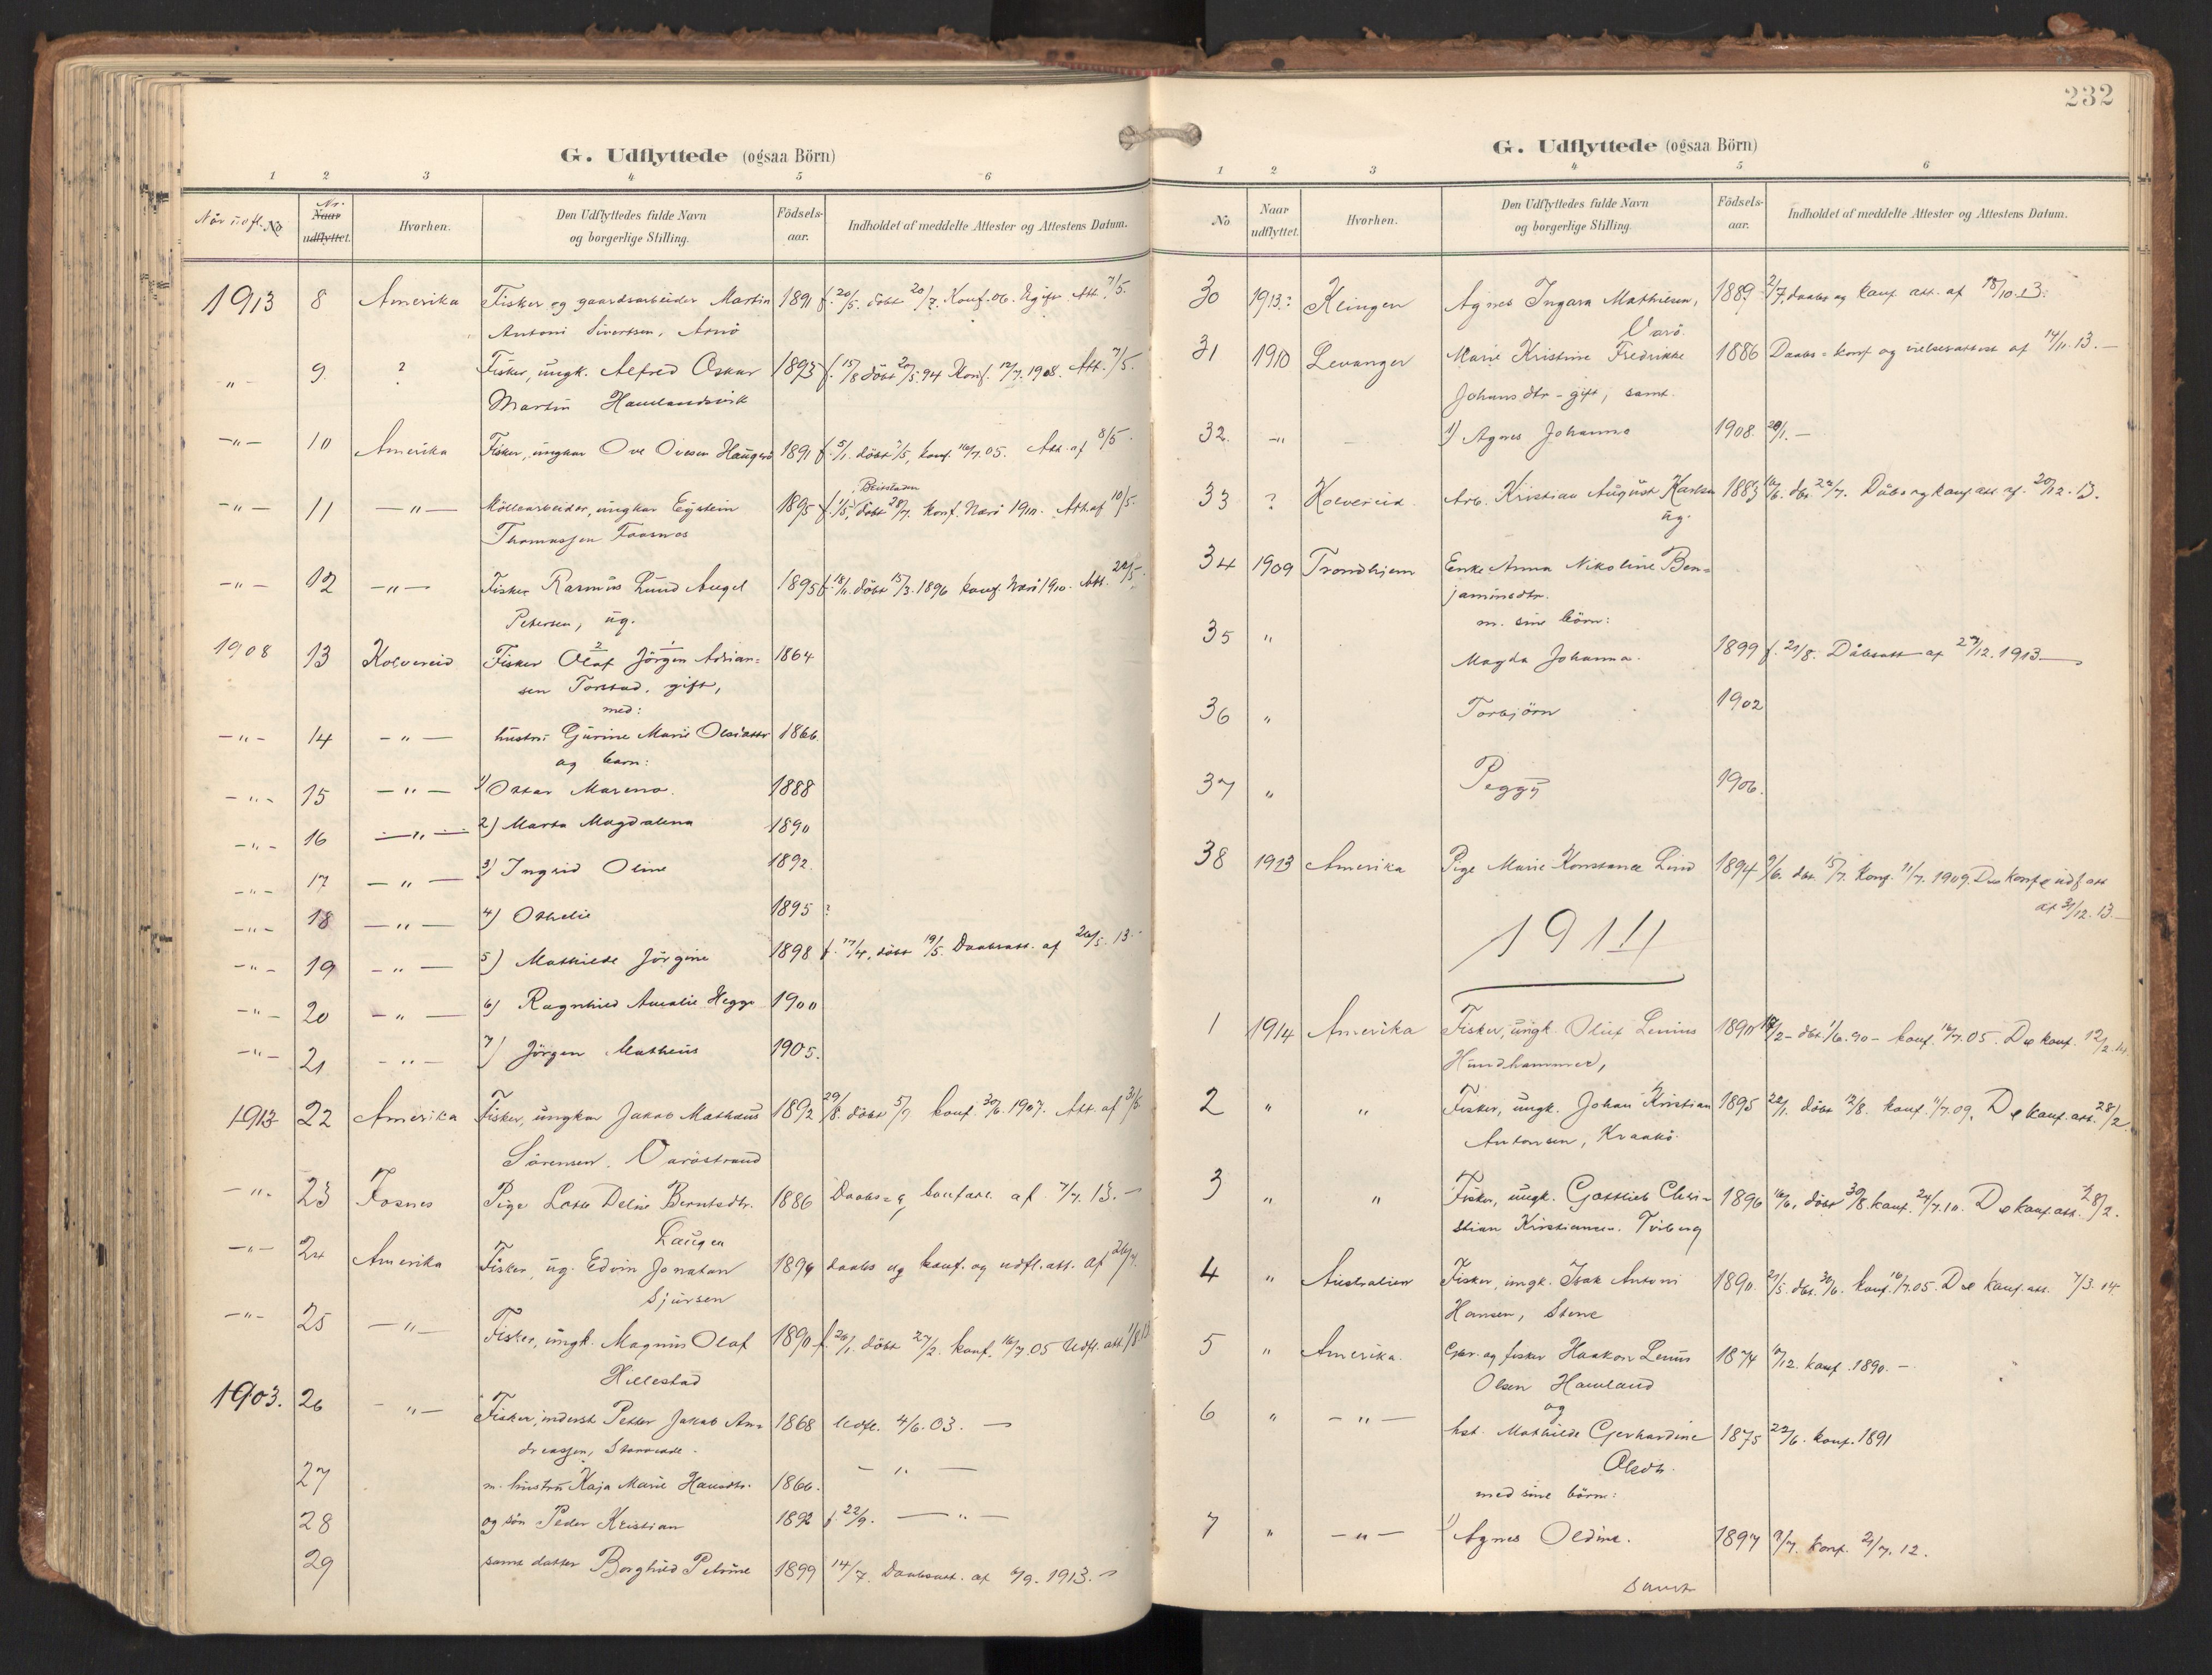 G. Udflyttede (ogsaa Börn)
1 2 3 4 5 6
Når udfl. No Nr. Naar udflyttet. Hvorhen. Den Udflyttedes fulde Navn og borgerlige Stilling. Födsels-aar. Indholdet af meddelte Attester og Attestens Datum.
1913 8 Amerika Fisker og gaardsarbeider Martin 1891 f. 20/5. döbt 20/7. Konf. 06. Ugift Att. 7/5.
Antoni Sivertsen, Arnö
-"- 9 ? Fisker, ungk. Alfred Oskar 1893 f. 15/8 döbt 20/5.94 Konf. 12/7.1908. Att. 7/5.
Martin Hamlandsvik
-"- 10 Amerika Fisker, ungkar Ove Ovesen Haugsö 1891 f. 5/1. döbt 7/5, konf. 16/7.05. Att. af 8/5.
Beitstaden
-"- 11 -"- Möllearbeider, ungkar Eystein 1895 f. 1/5, döbt 28/7. konf. Nærö 1910. Att. af 10/5.
Thomassen Foosnæs
-"- 12 -"- Fisker Rasmus Lund Angel 1895 f. 18/11. döbt 15/3.1896 konf. Nærö 1910. Att. 24/5.
Petersen, ug.
1908 13 Kolvereid Fisker Olaf Jörgen Adrian= 1864
sen Torstad. gift,
med:
-"- 14 -"- hustru Gurine Marie Olsdatter 1866.
og barn:
-"- 15 -"- 1) Ottar Mareno. 1888
-"- 16 -"- 2) Marta Magdalena 1890
-"- 17 -"- 3) Ingrid Oline 1892.
-"- 18 -"- 4) Othelie 1895 ?
-"- 19 -"- 5) Mathilde Jörgine 1898 f. 17/4, döbt 19/5. Daabsatt. af 26/5. 13.
-"- 20 -"- 6) Ragnhild Amalie Hegge 1900
-"- 21 -"- 7) Jörgen Matheus 1905.
1913 22 Amerika Fisker, ungkar Jakob Mathæus 1892 29/8. döbt 5/9 konf. 30/6.1907. Att. af 3/6.
Sörensen. Varöstrand
-"- 23 Fosnes Pige Lotte Deline Berntsdtr. 1886 Daabs= & konfatt. af 7/7. 13. -
Laugen
-"- 24 Amerika Fisker, ug. Edvin Jonatan 1894 daabs og konf. og udfl. att. af 26/7.
Sjursen
-"- 25 -"- Fisker, ungk. Magnus Olaf 1890 f. 26/1. döbt 27/2. konf. 16/7.05 Udfl. att. 1/8 13
Hillestad
1903. 26 -"- Fisker, inderst Petter Jakob An= 1868 Udfl. 4/6. 03. -
dreassen,
27 m. hustru Kaja Marie Hansdtr. 1866. -"-
28 og sön Peder Kristian 1892 f 22/9. -"-
29 samt datter Borghild Petrine 1899 14/7. Daabsatt. af 6/9. 1913. -
232
G. Udflyttede (ogsaa Börn)
1 2 3 4 5 6
No Naar udflyttet. Hvorhen. Den Udflyttedes fulde Navn og borgerlige Stilling. Födsels-aar. Indholdet af meddelte Attester og Attestens Datum.
30 1913? Klingen Agnes Ingara Mathisen, 1889 2/7, daabs og konf. att. af 18/10.13.
Varö.
31 1910 Levanger Marie Kristine Fredrikke 1886 Daabs= konf og vielsesattest af 14/11. 13. -
Johansdtr - gift, samt.
32. -"- 1) Agnes Johanna 1908. 28/1. -
33 ? Kolvereid. Arb. Kristian August Karlsen 1883 16/6. dbt. 22/7. Dåbs og konf att. af. 20/12. 13.
ug.
34 1909 Trondhjem Enke Anna Nikoline Ben=
jaminsdtr.
m. sine börn:
35 " Magda Johanna. 1899 f. 21/8. Dåbsatt af 27/12.1913
36 " Torbjörn 1902
37 " Peggy 1906.
38 1913 Amerika Pige Marie Konstance Lund 1894 9/6. dbt. 15/7. konf. 11/7. 1909. D & konf & udf att
af 31/12. 13.
1914
1 1914 Amerika Fisker, ungk. Oluf Lenius 1890 18/2 - dbt. 1/6.90 - konf. 16/7.05. D & konf. 12/2.14.
Hundhammer,
2 " " Fisker, ungk. Johan Kristian 1895 22/1. döbt 12/8. konf. 11/7.09. D & konf. att. 28/2.
Antonsen, Kraakö.
3 " " Fisker, ungk. Gottlieb Chri= 1896 16/6, döbt 30/8. konf. 24/7.10. D & konf. att. 28/2.
stian Kristiansen. Torberg
4 " Australien Fisker, ungk. Isak Antoni 1890. 27/5. dbt. 30/6. konf. 16/7.05. D & konf. att. 7/3. 14.
Hansen, Stene
5 " Amerika. Gbr. og fisker Haakon Lenius 1874 10/12. konf. 1890. -
Olsen Hamland
og
6 " -"- hst. Mathilde Gerhardine 1875 22/6. konf. 1891
Olsdtr.
med sine börn:
7 " -"- 1) Agnes Oldine. 1897 9/7. konf. 21/7. 12.
samt